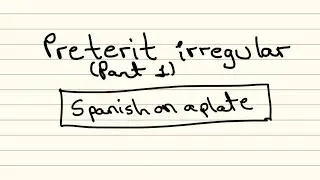 Preterit irregular
(Part 1)
Spanish on a plate